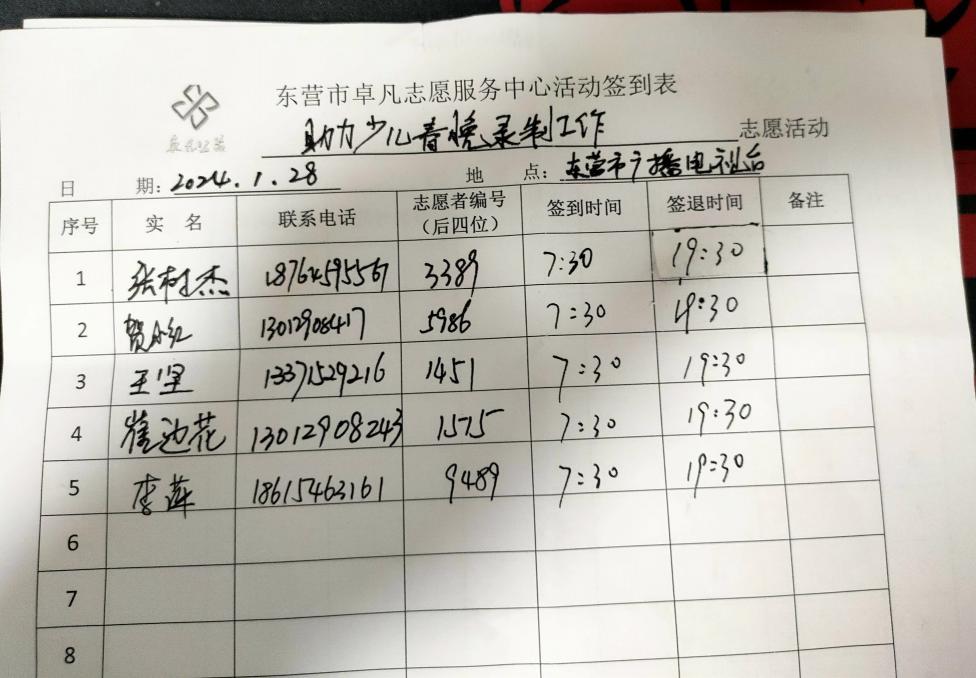 东营市卓凡志愿服务中心活动签到表
助力少儿春晚录制工作 志愿活动
日 期: 2024.1.28 地 点: 东营市广播电视台
序号 实 名 联系电话 志愿者编号（后四位） 签到时间 签退时间 备注
1 张树杰 18764595567 3389 7:30 19:30
2 贺 13012908417 5986 7:30 19:30
3 王坚 13371529216 1451 7:30 19:30
4 崔迎花 13012908243 1575 7:30 19:30
5 李莲 18615463161 9489 7:30 19:30
6
7
8